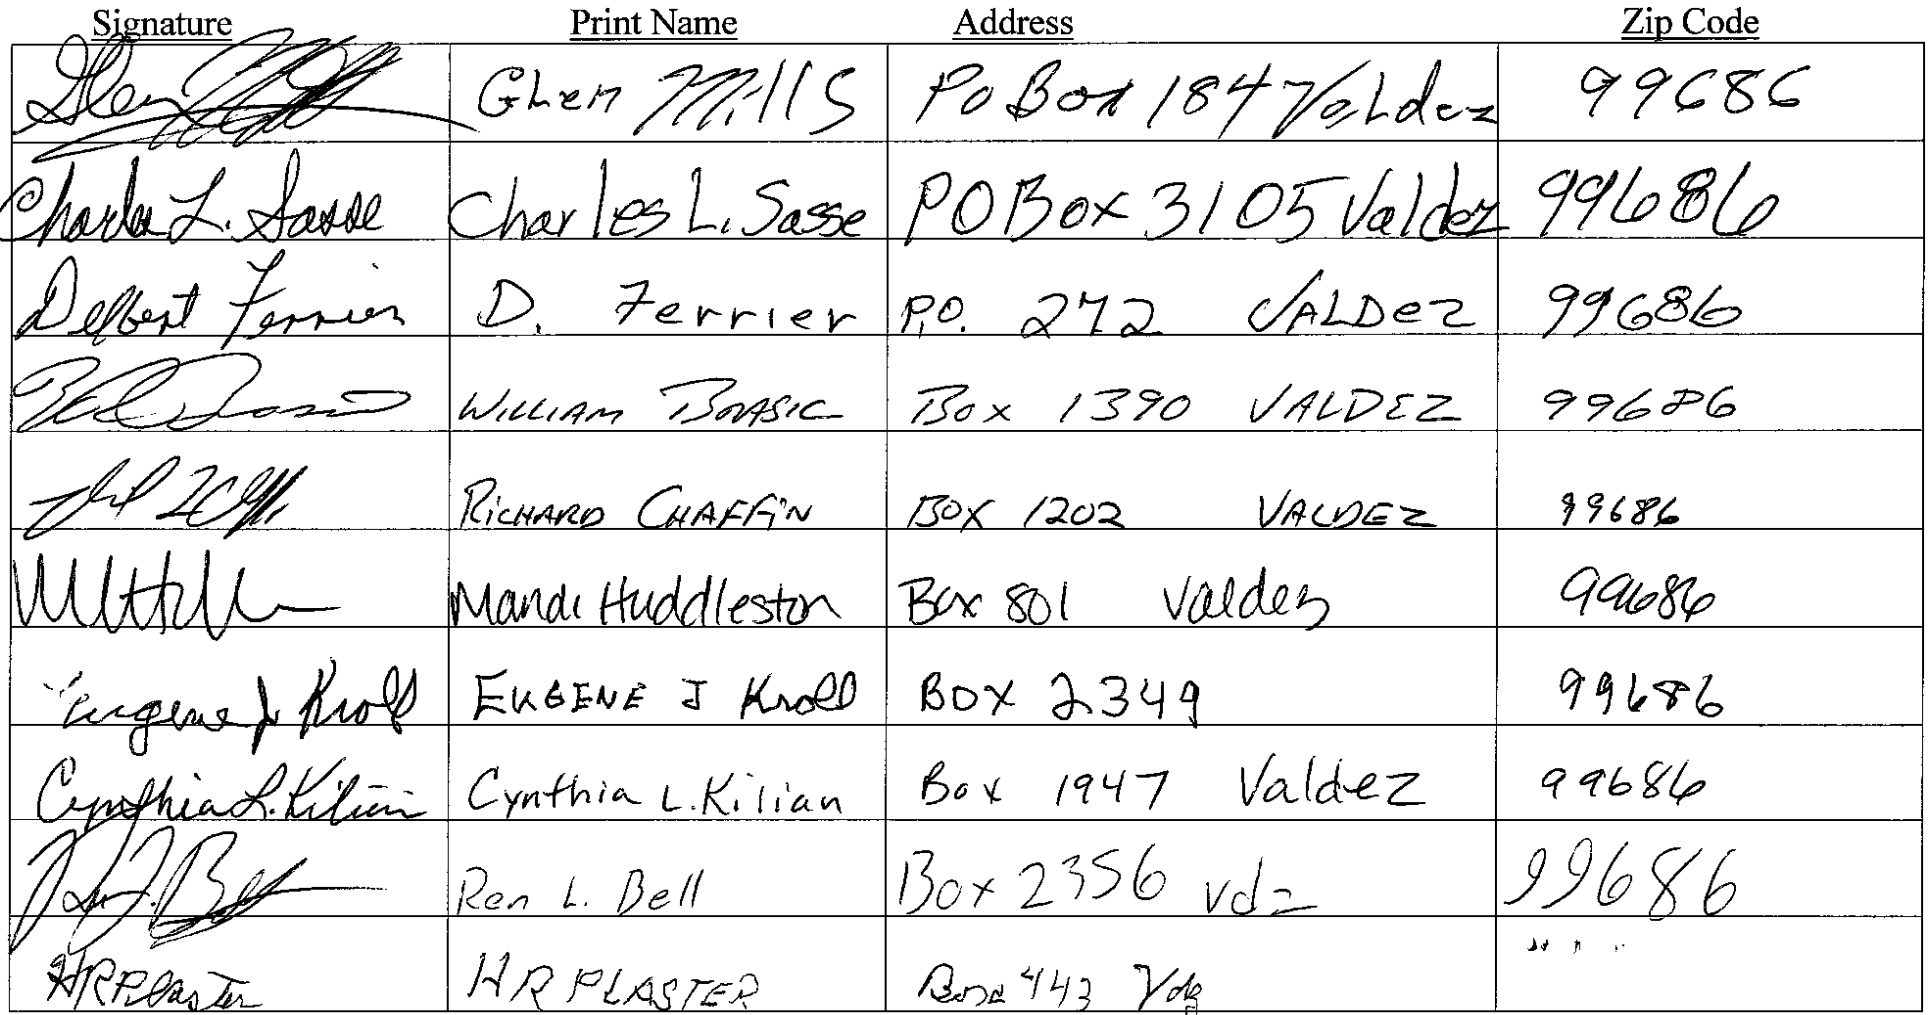 Signature Print Name Address Zip Code
Glen Mills PO Box 1847 Valdez 99686
Charles L. Sasse Charles L. Sasse PO Box 3105 Valdez 99686
Delbert Ferrier D. Ferrier P.O. 272 VALDEZ 99686
WILLIAM BRASIC Box 1390 VALDEZ 99686
RICHARD CHAFFIN BOX 1202 VALDEZ 99686
Mandi Huddleston Box 801 Valdez 99686
Eugene J Kroll EUGENE J Kroll BOX 2349 99686
Cynthia L. Kilian Cynthia L. Kilian Box 1947 Valdez 99686
Ren L. Bell Box 2356 vdz 99686
HR Plaster HR PLASTER Box 443 Vdz